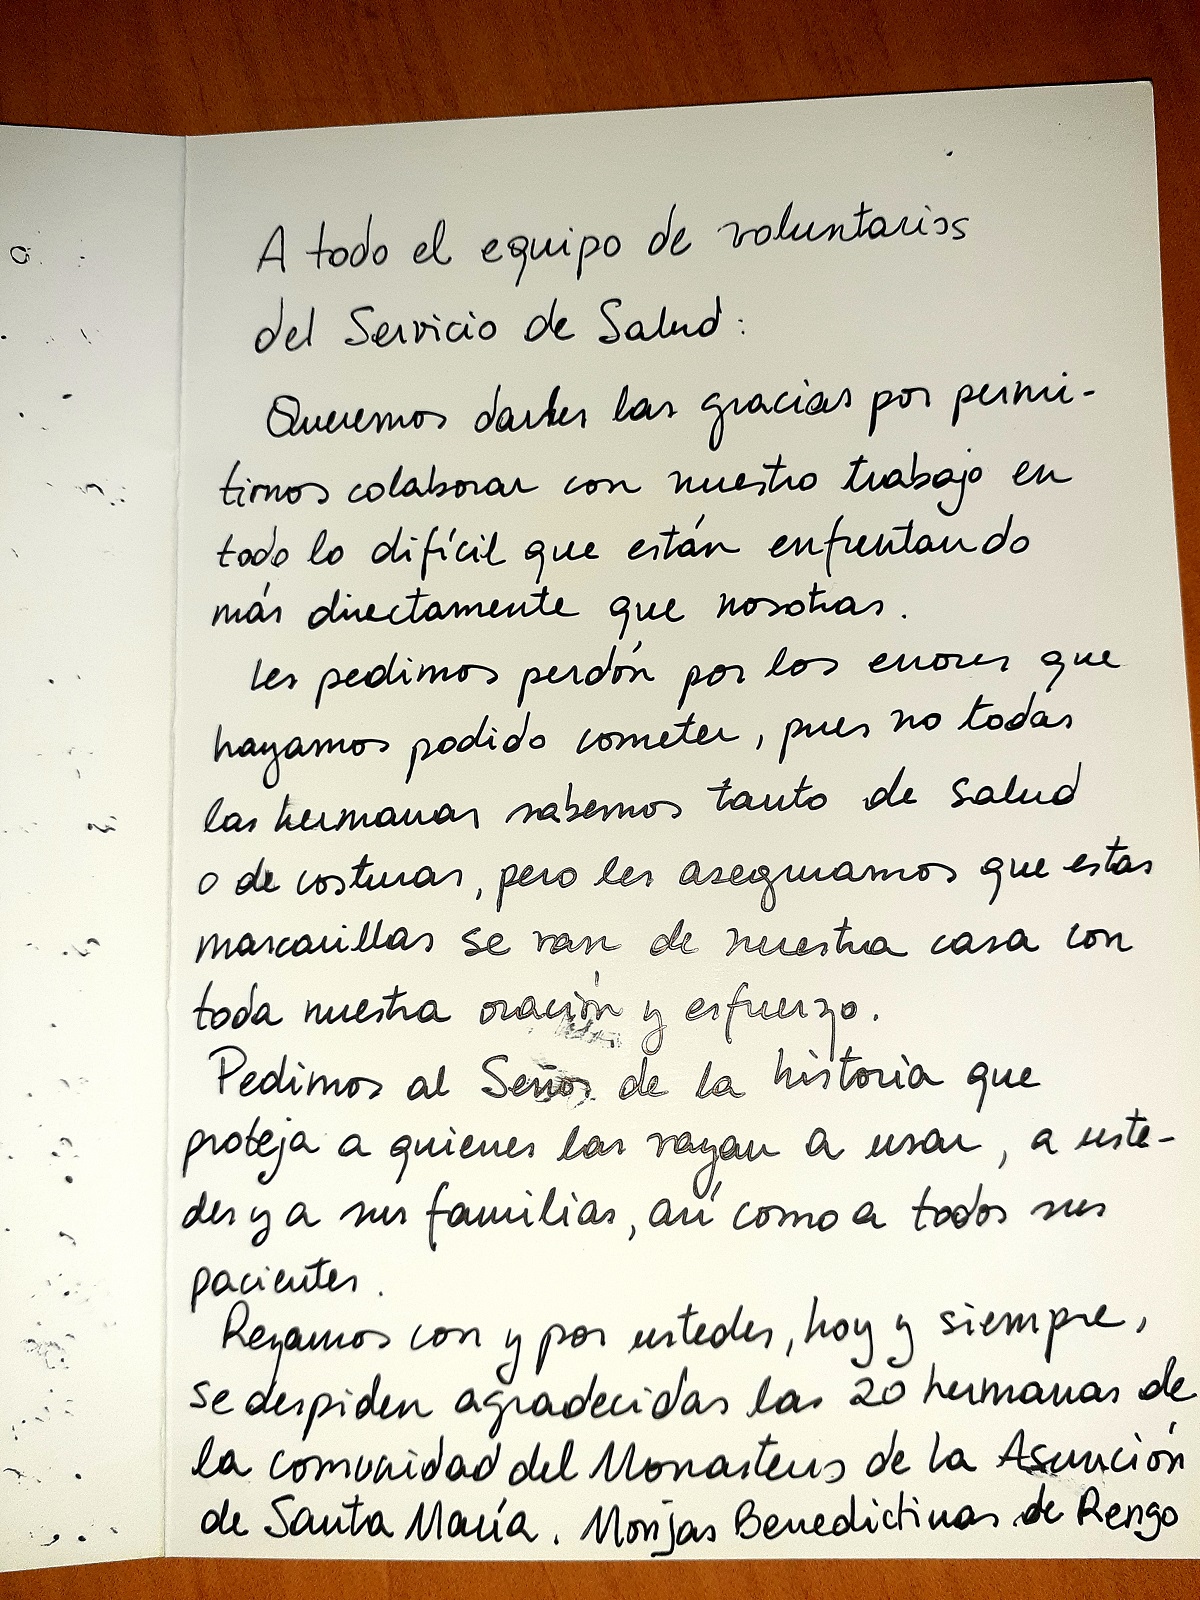 A todo el equipo de voluntarios
del Servicio de Salud:
Queremos darles las gracias por permi-
tirnos colaborar con nuestro trabajo en
todo lo difícil que están enfrentando
más directamente que nosotras.
Les pedimos perdón por los errores que
hayamos podido cometer, pues no todas
las hermanas sabemos tanto de salud
o de costuras, pero les aseguramos que estas
mascarillas se van de nuestra casa con
toda nuestra oración y esfuerzo.
Pedimos al Señor de la historia que
proteja a quienes las vayan a usar, a uste-
des y a sus familias, así como a todos sus
pacientes.
Rezamos con y por ustedes, hoy y siempre,
se despiden agradecidas las 20 hermanas de
la comunidad del Monasterio de la Asunción
de Santa María. Monjas Benedictinas de Rengo